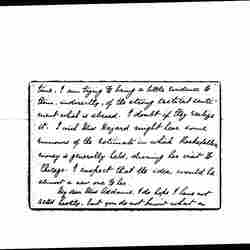 time. I am trying to bring a little evidence to
them, indirectly, of the strong sentiment
ment what is abroad. I doubt if they realize
it. I wish Miss Hazard might hear some
rumours of the estimate in which Rockefeller
money is generally held, during her visit to
Chicago. I suspect that the idea would be
almost a new one to her.
My dear Miss Addams, I do hope I have not
acted hastily, but you do not know what a